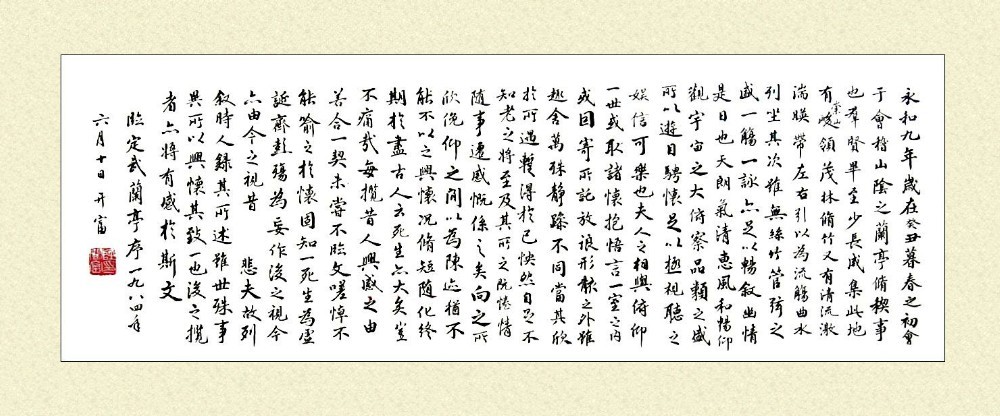 永和九年歲在癸丑暮春之初會
于會稽山陰之蘭亭脩稧事
也羣賢畢至少長咸集此地
有崇山峻領茂林脩竹又有清流激
湍暎帶左右引以為流觴曲水
列坐其次雖無絲竹管弦之
盛一觴一詠亦足以暢敘幽情
是日也天朗氣清惠風和暢仰
觀宇宙之大俯察品類之盛
所以遊目騁懷足以極視聽之
娛信可樂也夫人之相與俯仰
一世或取諸懷抱悟言一室之內
或因寄所託放浪形骸之外雖
趣舍萬殊靜躁不同當其欣
於所遇暫得於己怏然自足不
知老之將至及其所之既惓情
隨事遷感慨係之矣向之所
欣俛仰之閒以為陳迹猶不
能不以之興懷況脩短隨化終
期於盡古人云死生亦大矣豈
不痛哉每攬昔人興感之由
若合一契未嘗不臨文嗟悼不
能喻之於懷固知一死生為虛
誕齊彭殤為妄作後之視今
亦由今之視昔 悲夫故列
敘時人錄其所述雖世殊事
異所以興懷其致一也後之攬
者亦將有感於斯文
臨定武蘭亭序一九八四年
六月十日 开富